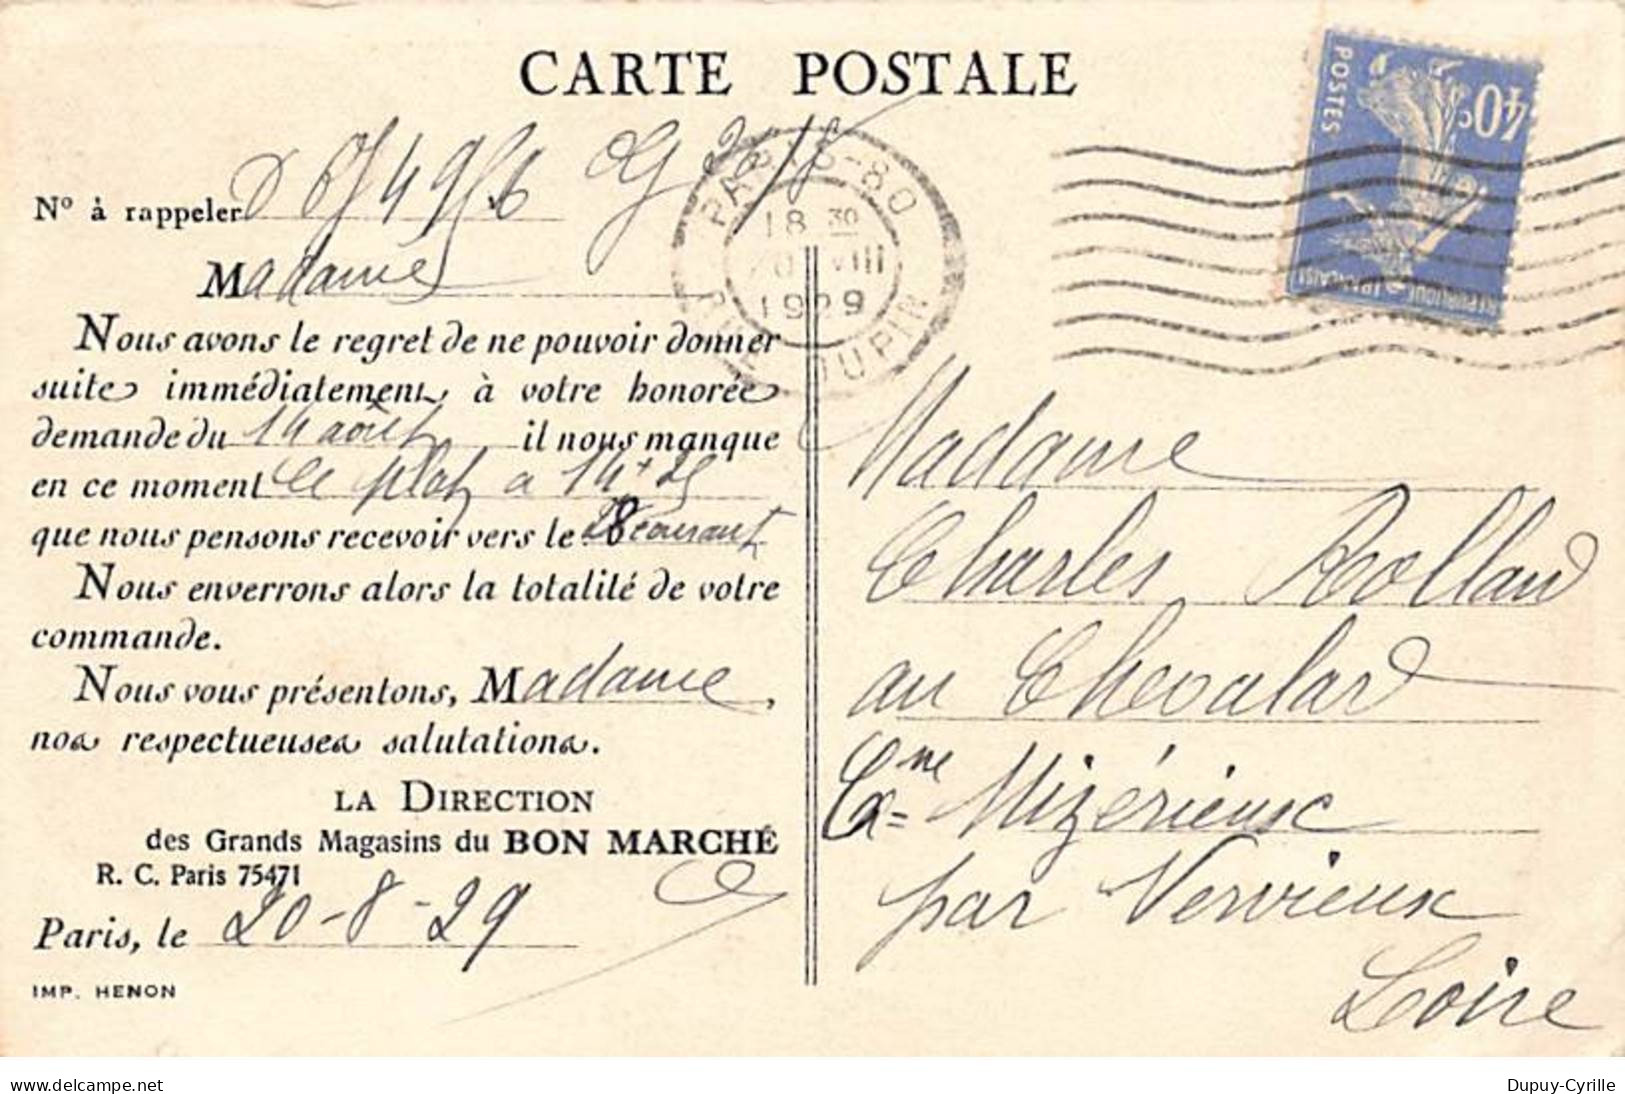 CARTE POSTALE
N° à rappeler
Madame
Nous avons le regret de ne pouvoir donner
suite immédiatement à votre honorée
demande du 14 août il nous manque
en ce moment le plat à 14+25
que nous pensons recevoir vers le 28 courant
Nous enverrons alors la totalité de votre
commande.
Nous vous présentons, Madame,
nos respectueuses salutations.
LA DIRECTION
des Grands Magasins du BON MARCHÉ
R. C. Paris 75471
Paris, le 20-8-29
IMP. HENON
PARIS-80
18 30
20 VIII
1929
RUE DUPIN
POSTES
40c
REPUBLIQUE FRANÇAISE
Madame
Charles Rolland
au Chevalard
Cne Mizérieux
par Vervieux
Loire
www.delcampe.net
Dupuy-Cyrille